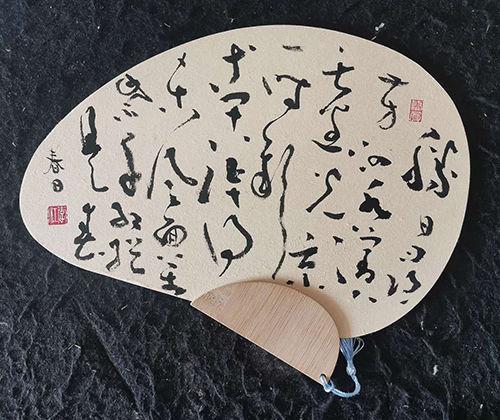 勝日尋
芳泗水濱
無邊光景
一時新
等閒識得
東風面萬
紫千紅總
是春
春日